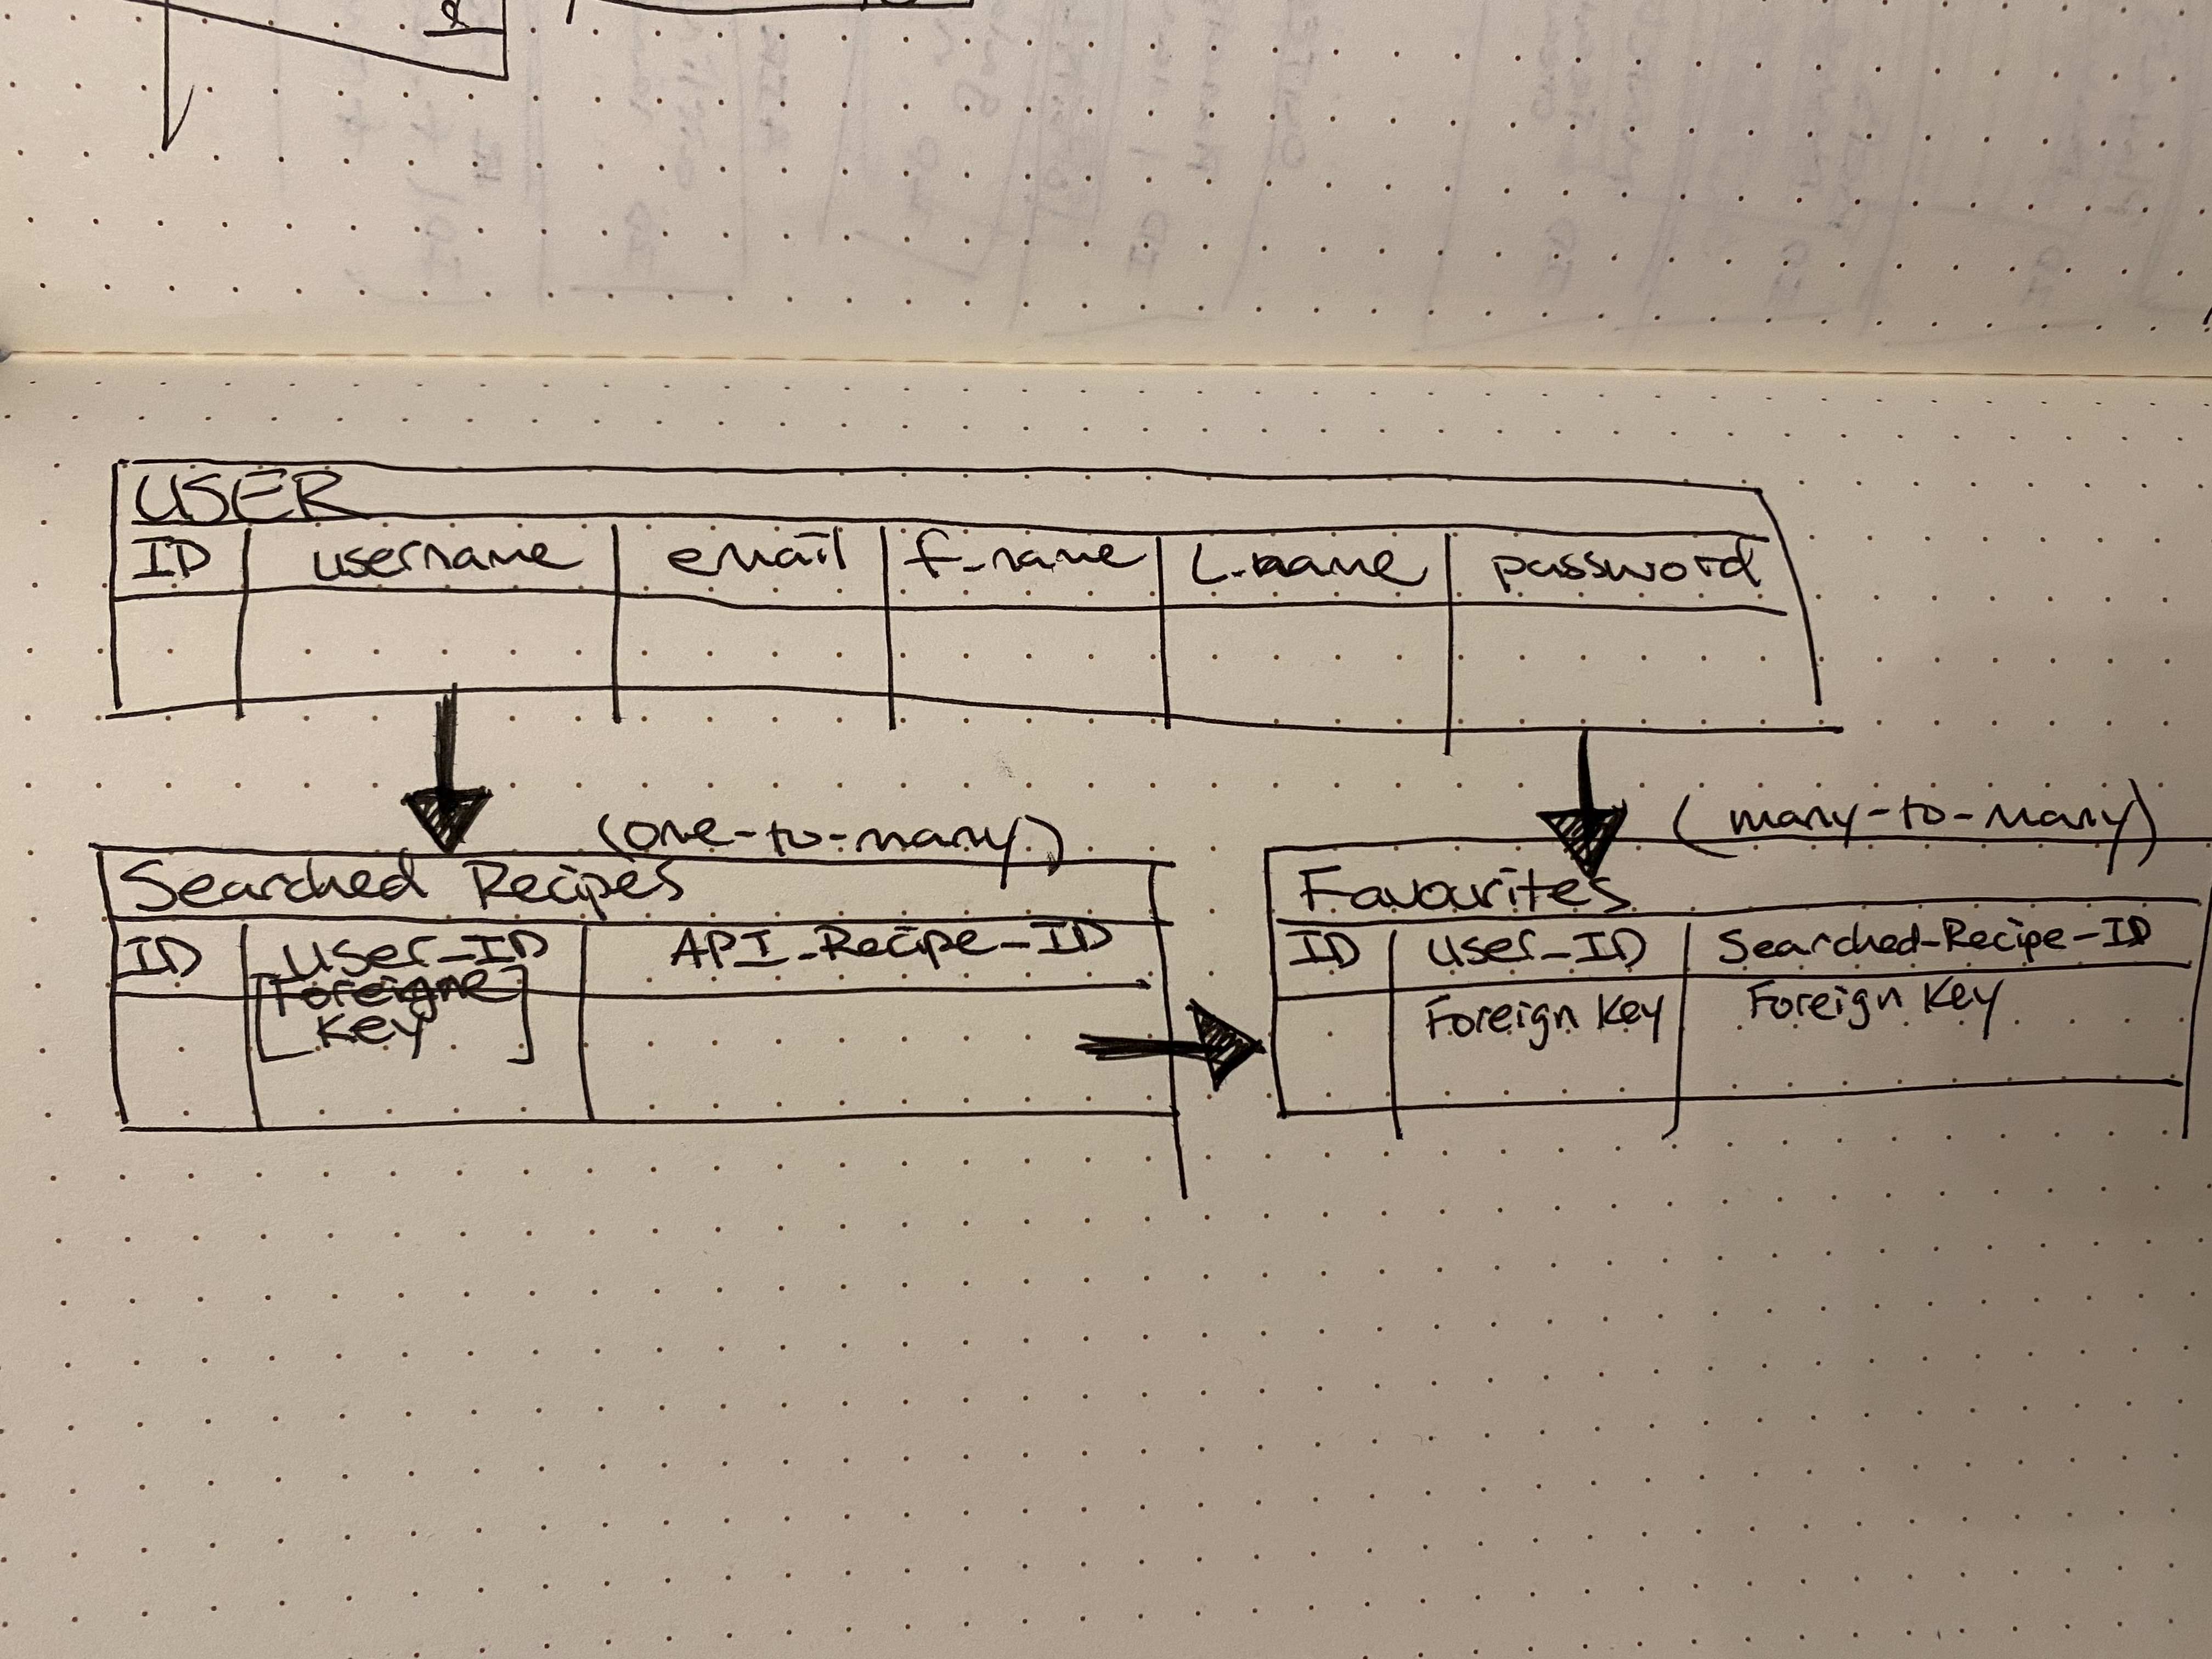 USER
ID username email f-name L-name password
(one-to-many)
(many-to-many)
Searched Recipes
ID User-ID API-Recipe-ID
[Foreigne
Key]
Favourites
ID User-ID Searched-Recipe-ID
Foreign Key Foreign Key